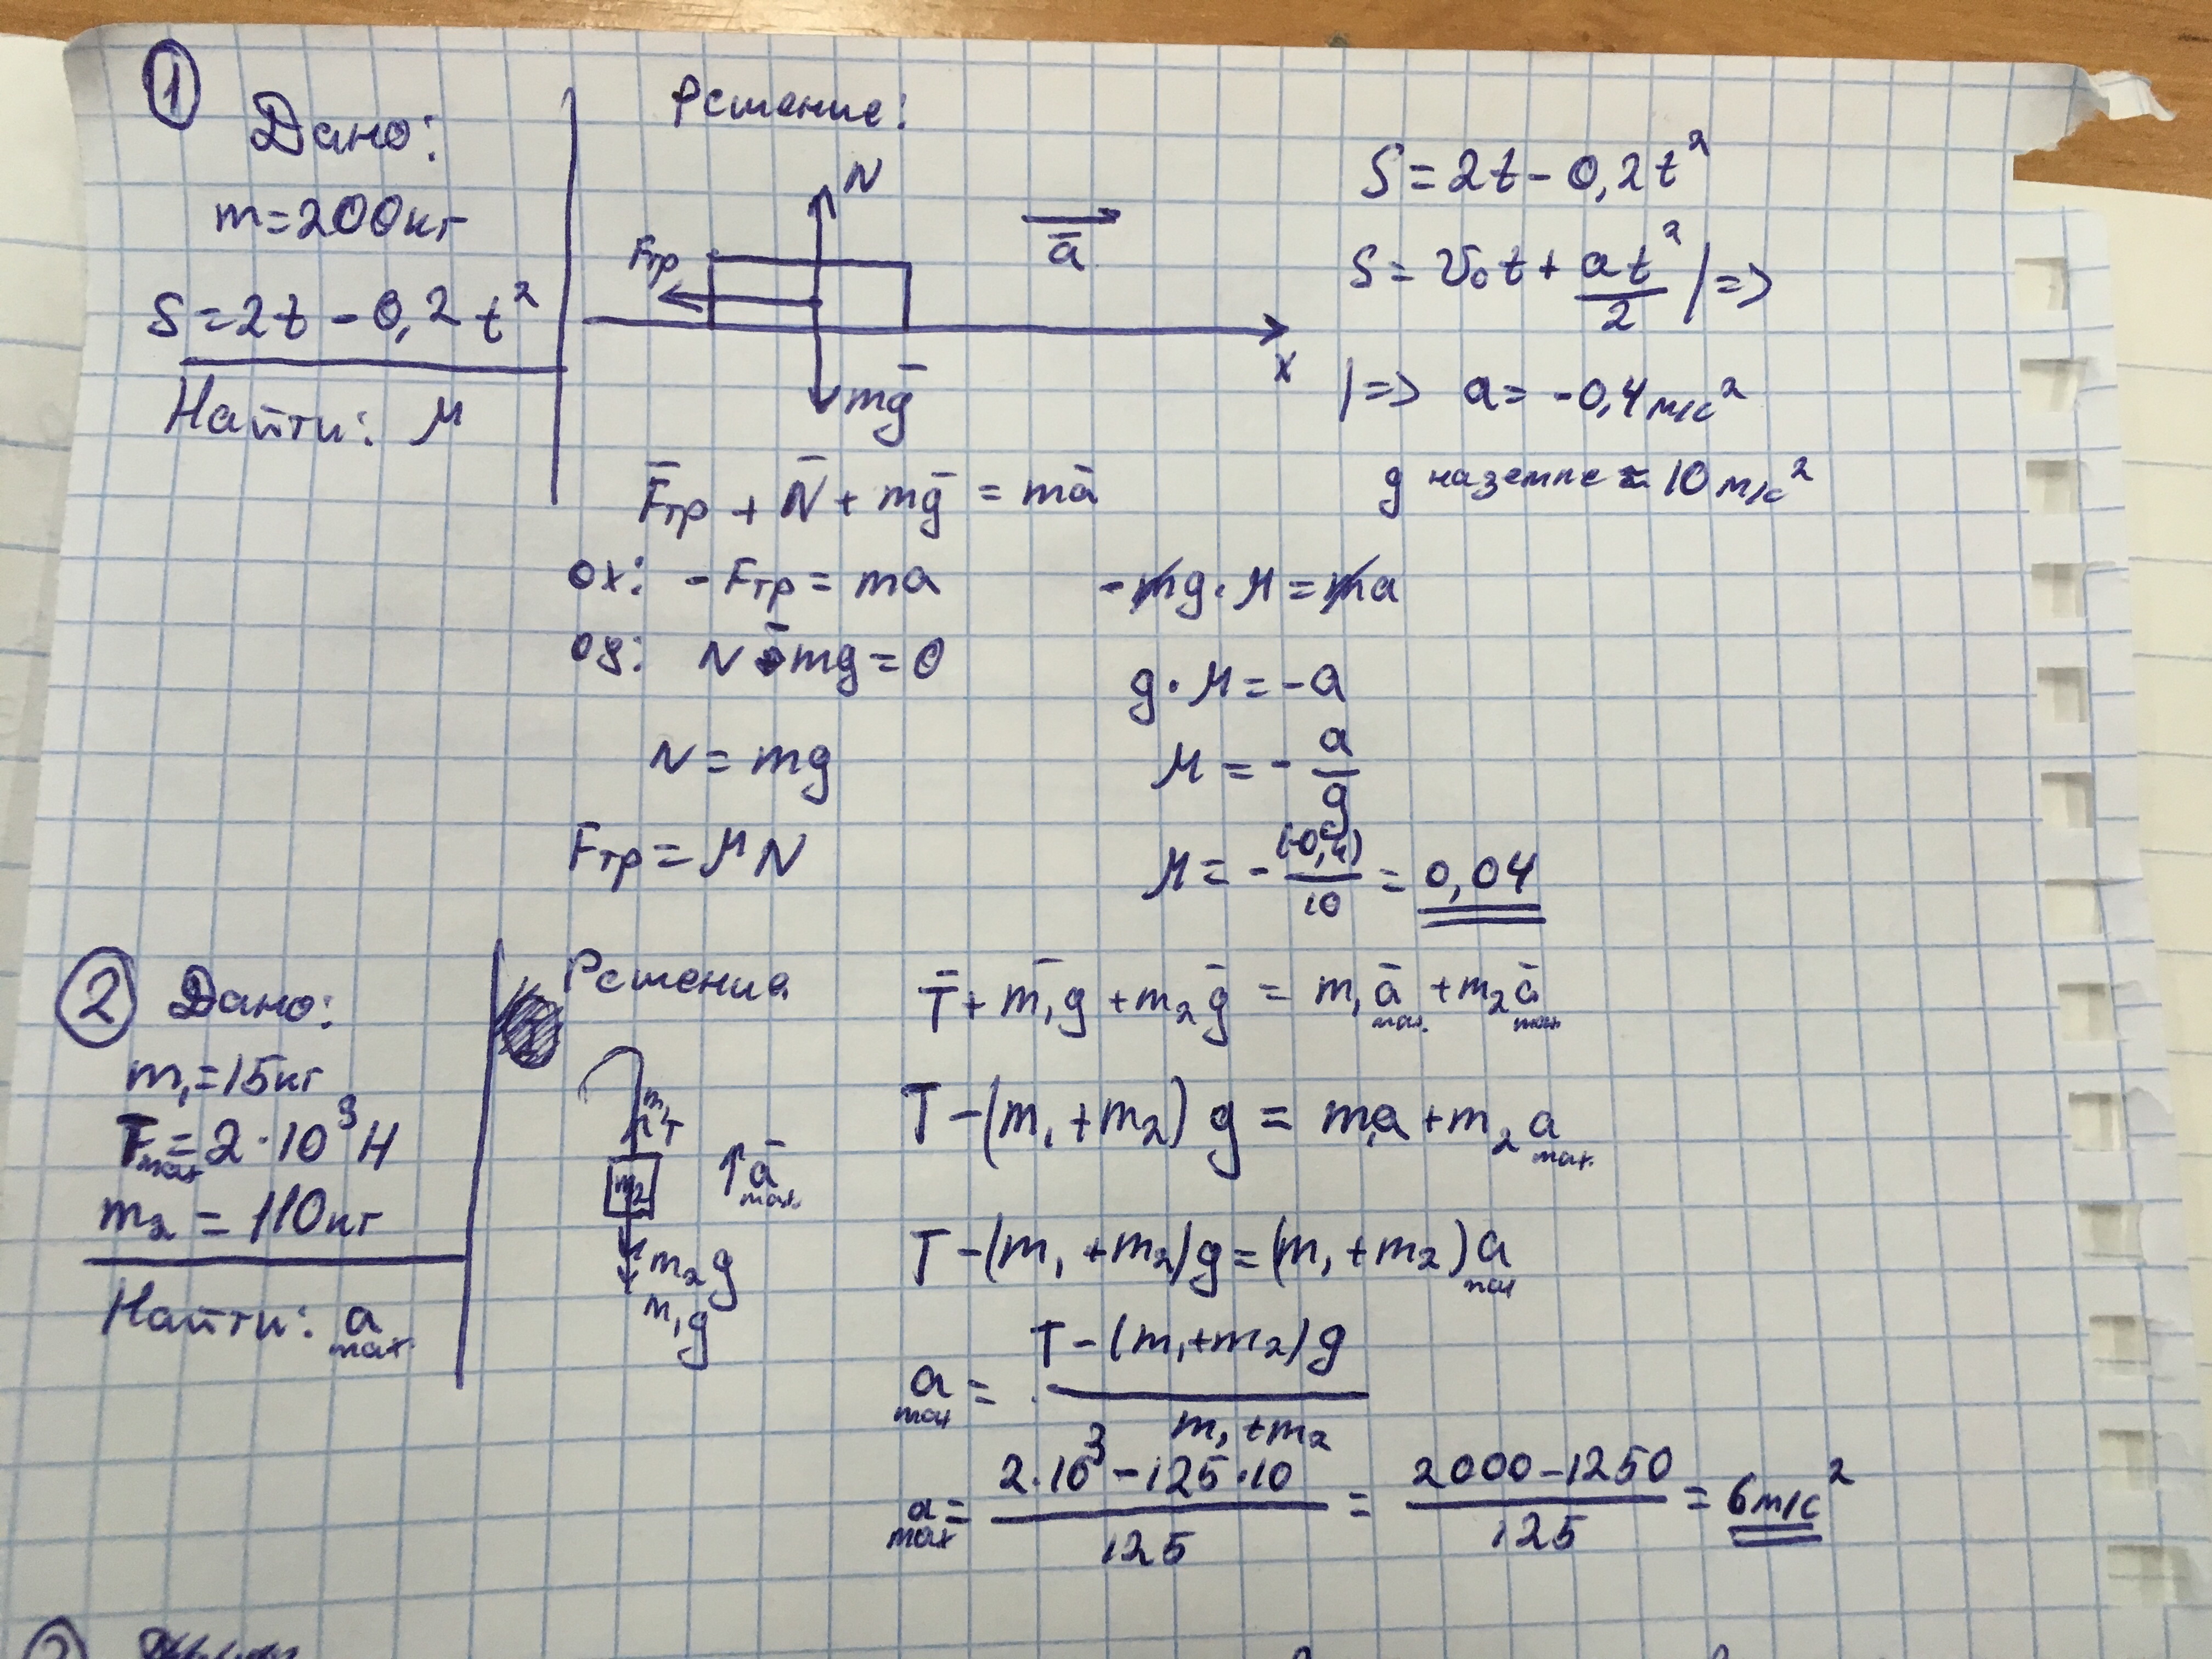 ①
Дано:
m=200кг
S=2t-0,2t²
Найти: μ
Решение:
N
Fтр
a̅
x
mg̅
S=2t-0,2t²
S=v₀t+at²/2 |=>
|=> a=-0,4м/с²
g на земле ≈ 10м/с²
F̅тр + N̅ + mg̅ = ma̅
ox: -Fтр = ma
oy: N-mg=0
N=mg
Fтр=μN
-mg·μ=ma
g·μ=-a
μ=-a/g
μ=-(-0,4)/10=0,04
②
Дано:
m₁=15кг
Tmax=2·10³Н
m₂=110кг
Найти: amax
Решение
m₁
T
m₂
a̅max
m₂g
m₁g
T̅+m₁g̅+m₂g̅=m₁a̅max+m₂a̅max
T-(m₁+m₂)g=m₁a+m₂amax
T-(m₁+m₂)g=(m₁+m₂)amax
amax=T-(m₁+m₂)g/m₁+m₂
amax=2·10³-125·10/125=2000-1250/125=6м/с²